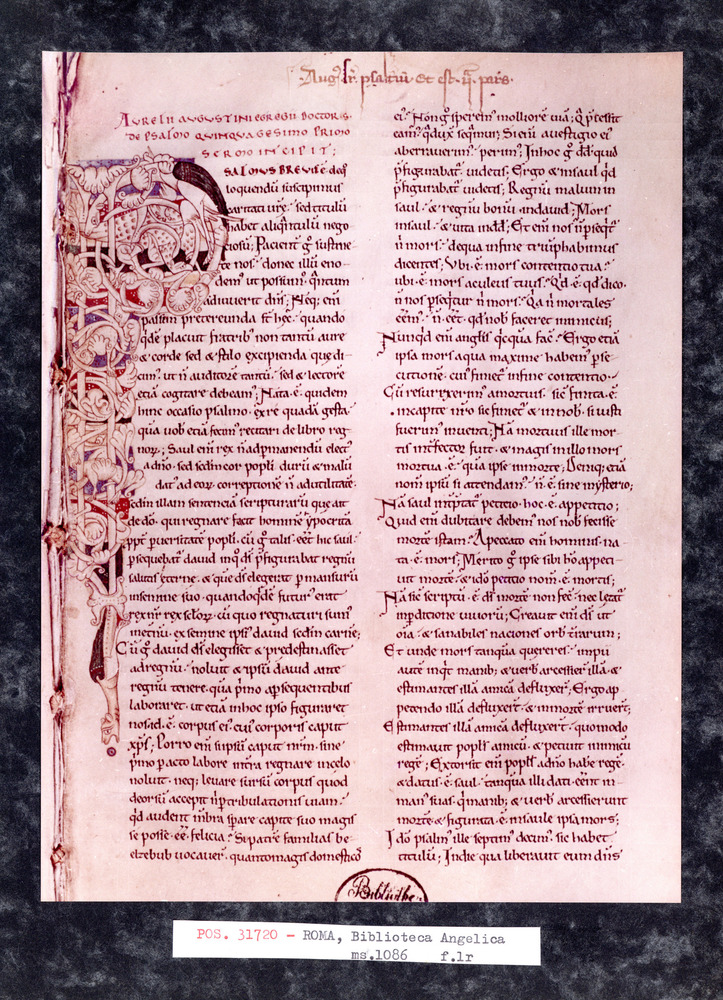 Aug͛ sr̄ psaltiū · et est · ij · pars ·
AVRELII AVGVSTINI EGREGII DOCTORIS ·
DE PSALMO QVINQVAGESIMO PRIMO
SERMO INCIPIT ;
PSALMUS BREVIS E · de q̄
loquendū suscepimus
caritati ur̄e · sed titulū
habet aliq̄ntulū nego
ciosū ; Pacient̄ g̊ sustine
te nos · donec illū eno
dem᷒ ut possum᷒ · q̄ntum
adiuuerit dn̄s ; Neq; enī
passim pretereunda sт̄ hęc · quando
q̄de placuit fratrib᷒ non tantū aure
& corde sed & stilo excipienda que di-
cim᷒ · ut n̄ auditorē tantū · sed & lectorē
etiā cogitare debeam᷒ ; Nata · ē · quidem
huic occasio psalmo · ex rē quadā gesta ·
quā uob᷒ etiā fecim᷒ recitari de libro reg-
noꝝ ; Saul enī rex n̄ ad pmanendū elect᷒
adn̄o · sed sedm̄ cor popli durū & malū
dat᷒ ad eoꝝ correptionē n̄ ad utilitatē ·
sedm̄ illam sentenciā scripturarū que ait
de dō · qui regnare facit hominē ypocritā
ꝓpt̄ puersitatē popli · cū g̊ talis eēt hic saul ·
psequebat᷒ dauid · inq̊ dī p̄figurabat regnū
salutis eternę · & quē ds̄ elegerat p̄mansurū
in semine suo · quandoq̄dē futur᷒ erat
rex nr̄ rex sc̄loꝝ · cū quo regnaturi sum᷒
inet̄nū · ex semine ipsi᷒ dauid sedm̄ carnē ;
Cū g̊ dauid ds̄ elegisset & predestinasset
ad regnū · noluit & ipsū dauid ante
regnū tenere · quā p̄mo a psequentibus
laboraret · ut etiā in hoc ipso figuraret
nos · id · ē · corpus ei᷒ · cui᷒ corporis caput
xp̄s ; Porro enī si ipsū caput nr̄m · sine
p̄mo pacto labore intra regnare in celo
noluit · neq; leuare sursū corpus quod
deorsū accepit n̄ p tribulationis uiam ·
qd̄ audent mēbra sꝑare capite suo magis
se posse · eē · felicia ? Si patrē familias be-
elzebub uocauer̄ · quanto magis domesticos
ei᷒ · Non g̊ sperem᷒ molliorē uiā ; Q̄ p̄cessit
eam᷒ · q̄ dux᷒ seq̄mur ; Si enī a uestigio ei᷒
aberrauerim᷒ · perim᷒ ; In hoc g̊ dd̄ quid
p̄figurabat᷒ uidetis ; Ergo & in saul qd̄
p̄figurabat᷒ uidetis ; Regnū malum in
saul · & regnū bonū in dauid ; Mors
in saul · & uita in dd̄ ; Et enī nos n̄ pseqt̄ᷓ
n̄ mors · de qua in fine triūphabimus
dicentes ; Vbi · ē · mors contentio tua ?
ubi · ē · mors aculeus tuus ? Qd̄ · ē · qd̄ dico ·
n̄ nos pseqt̄ur n̄ mors ? Q̄a n̄ mortales
eēm᷒ · n̄ · eēt · qd̄ nob᷒ faceret inimicus ;
Nunq̄d enī anglis qc̄quā fac̄ ? Ergo etiā
ipsa mors a qua maxime habem᷒ pse-
cutionē · cui᷒ finiet᷒ in fine contentio ·
Cū resurrexerim᷒ a mortuis · sic finita · ē ·
in capite nr̄o sic finiet᷒ & in nob᷒ · si iusti
fuerim᷒ inuenti ; Nā mortuus ille mor-
tis interfector fuit · & magis in illo mors
mortua · ē · quā ipse in morte ; Deniq; etiā
nom̄ ipsū si attendam᷒ · n̄ · ē · sine mysterio ;
Nā saul int̄p̄tat᷒ petitio · hoc · ē · appetitio ;
Quid enī dubitare debem᷒ nos nob᷒ fecisse
mortē istam ? A peccato enī hominis · na-
ta · ē · mors ; Merito g̊ ipse sibi hō appeti-
uit mortē · & ido petitio nom̄ · ē · mortis ;
Nā sic scriptū · ē · ds̄ mortē non fec̄ · nec letat᷒
in pditione uiuorū ; Creauit enī ds̄ ut
oīa · & sanabiles naciones orb᷒ t̄rarum ;
Et unde mors tanquā quereres · impii
autē inqt̄ manib᷒ · & uerb᷒ arcessier̄ illā · &
estimantes illā amicā defluxer̄ ; Ergo ap-
petendo illā defluxer̄ · & in mortē irruer̄ ;
Estimantes illā amicā defluxert̄ · quomodo
estimauit popls̄ amicū · & petiuit inimicū
regē ; Extorsit enī popls̄ adn̄o habe regē ·
& datus · ē · saul · tanquā illi dati · eēnt in-
man᷒ suas · q̄ manib᷒ · & uerb᷒ arcessierunt
mortē · & figurata · ē · in saule ipsa mors ;
Ido psalm᷒ ille septim᷒ decim᷒ · sic habet
titulū ; In die qua liberauit eum dn̄s
Bibliothe
POS. 31720 - ROMA, Biblioteca Angelica
ms.1086 f.1r